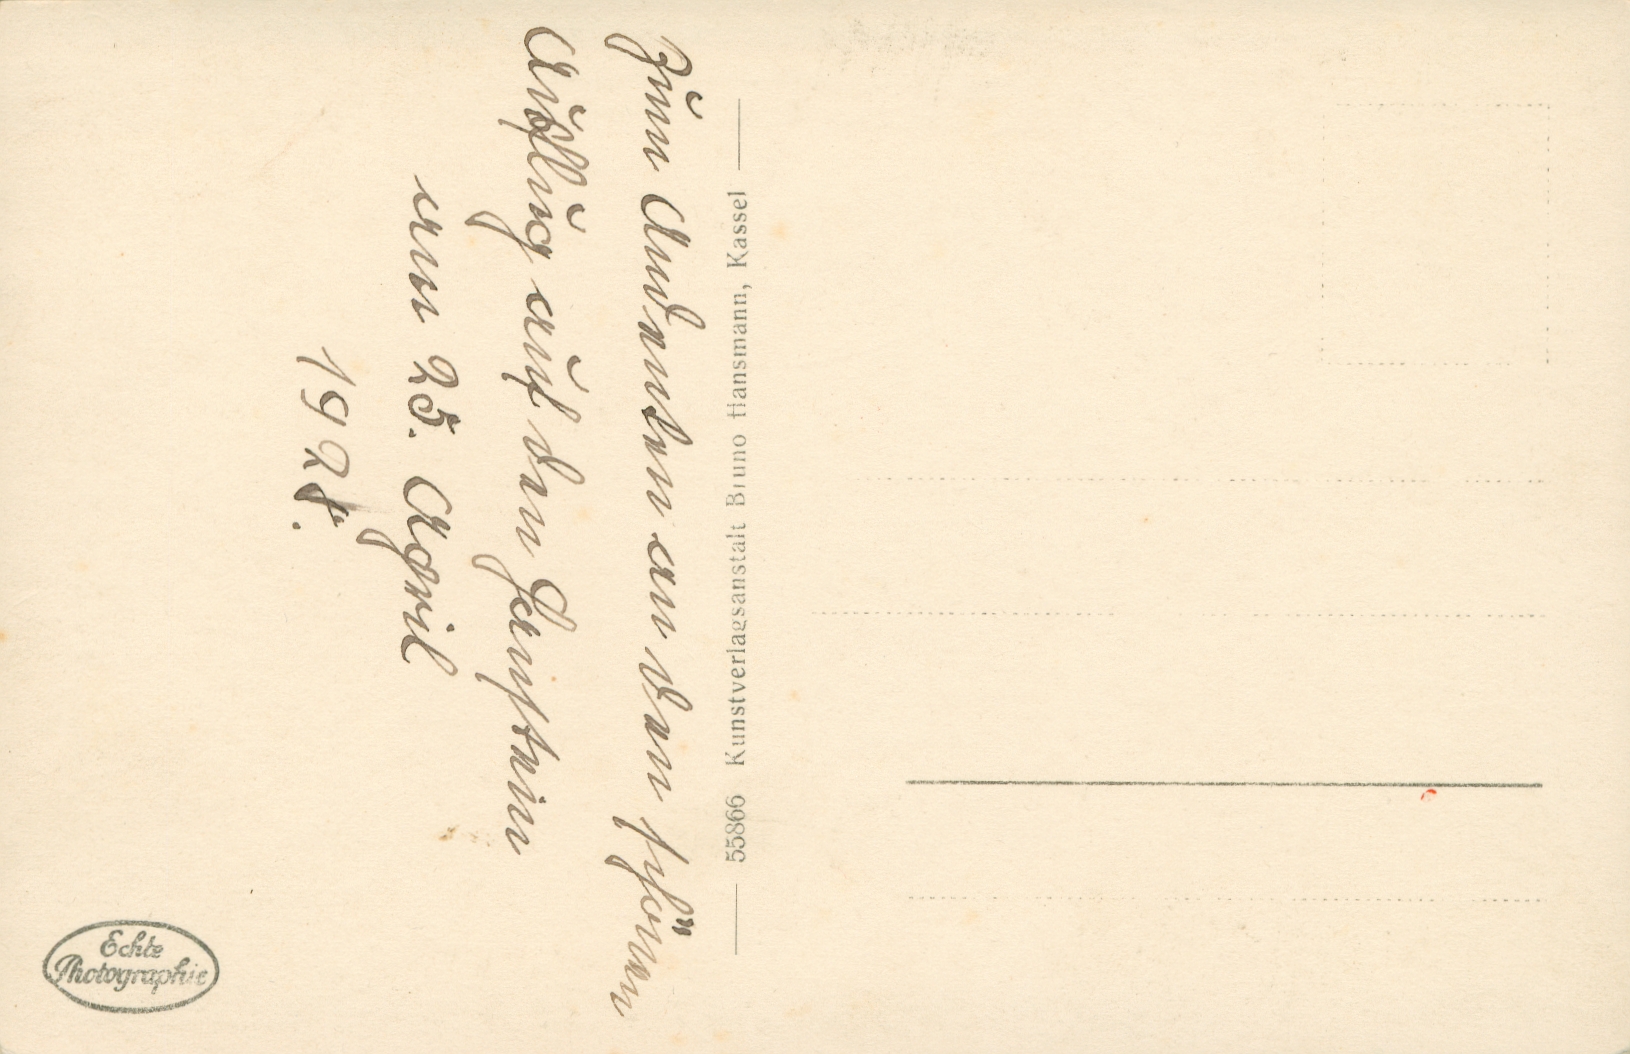 Zum Andenken an den schönen
Ausflug auf den Hanstein
am 25. April
55866 Kunstverlagsanstalt Bruno Hansmann, Kassel
Echte
Photographie